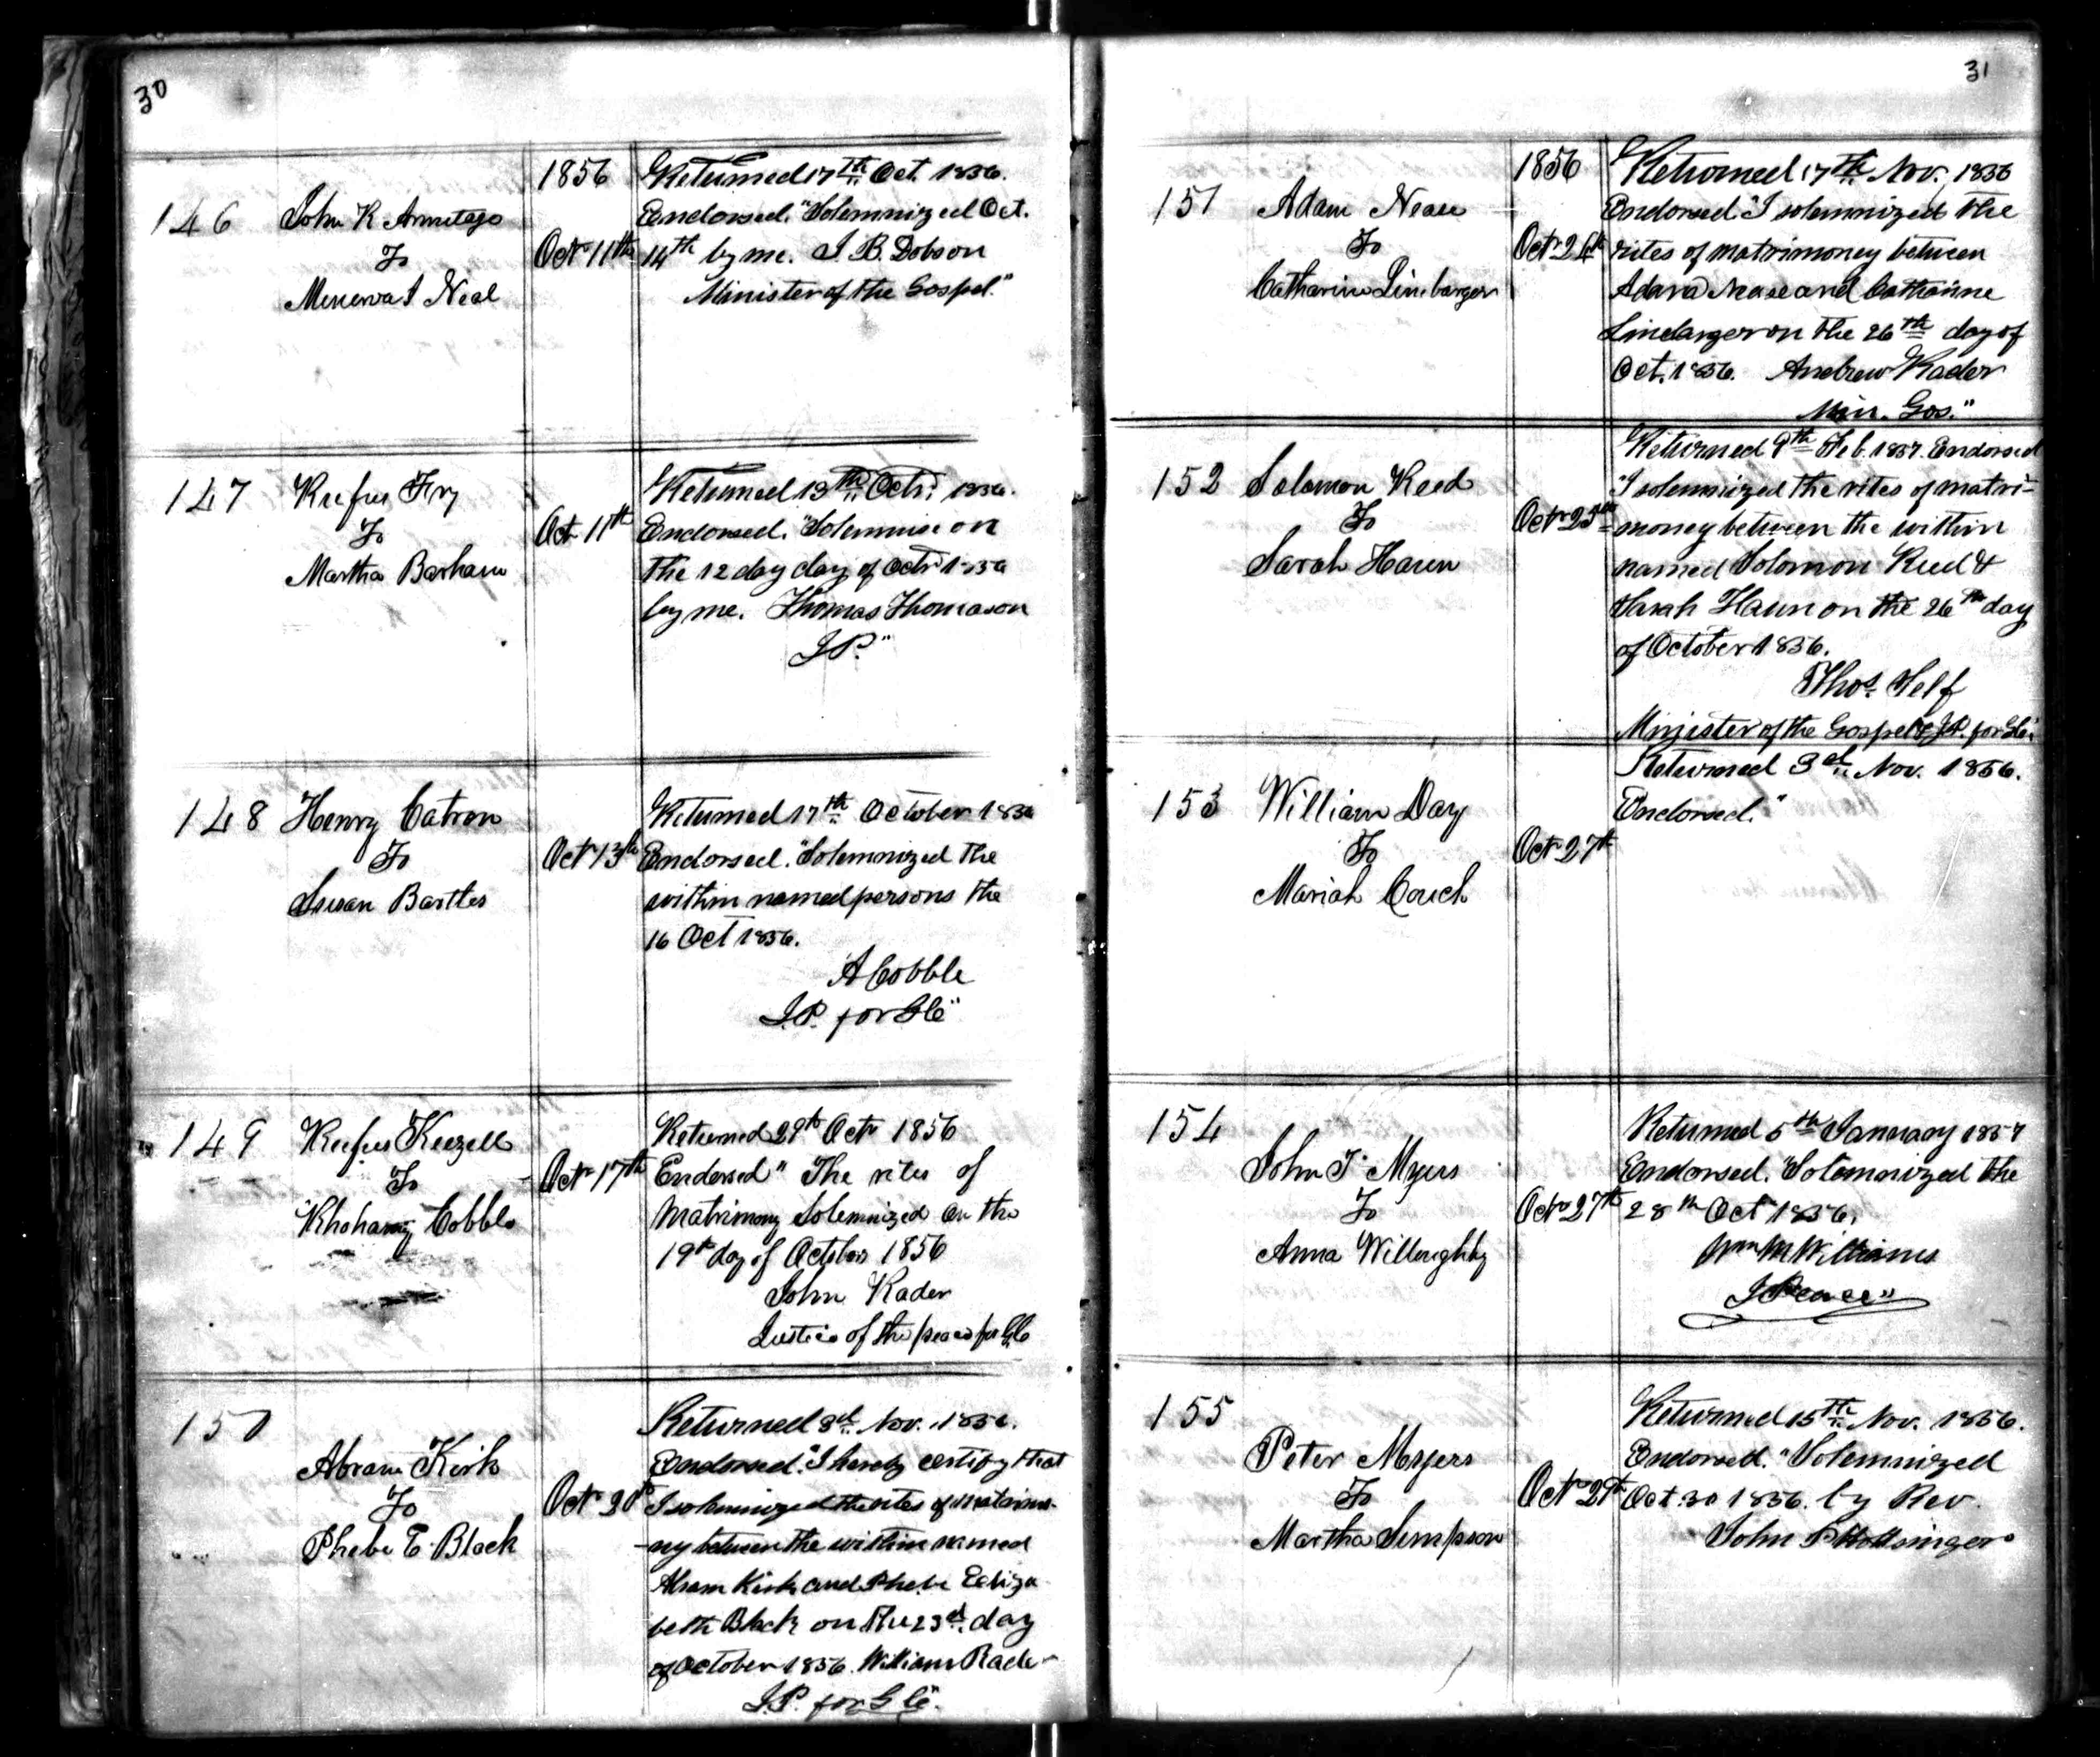 30
1856
146
John K Armitage
To
Minerva J Neal
Oct 11th
Returned 17th Oct. 1856.
Endorsed. "Solemnized Oct.
14th by me. J. B. Dobson
Minister of the Gospel."
147
Rufus Fry
To
Martha Barham
Oct 11th
Returned 13th Octr. 1856.
Endorsed. "Solemnise on
the 12 day day of Octr 1856
by me. Thomas Thomason
J.P."
148
Henry Catron
To
Susan Bartles
Oct 13th
Returned 17th October 1856
Endorsed. "Solemnized the
within named persons the
16 Oct 1856.
A Cobble
J.P. for G Co"
149
Rufus Keezell
To
Cobble
Oct 17th
Returned 29th Oct 1856
Endorsed" The rites of
Matrimony Solemnized on the
19th day of October 1856
John Rader
Justice of the peace for G Co
150
Abram Kirk
To
Phebe E. Black
Oct 20th
Returned 3d. Nov. 1856.
Endorsed. "I hereby certify that
I solemnized the rites of matrimo-
-ny between the within named
Abram Kirk and Phebe Eliza-
beth Black on the 23d. day
of October 1856. William Rader
J.P. for G Co".
31
1856
151
Adam Nease
To
Catharine Linebarger
Oct 26th
Returned 17th Nov. 1856
Endorsed "I solemnized the
rites of matrimoney between
Adam Nease and Catharine
Linebarger on the 26th day of
Oct. 1856. Andrew Rader
Min. Gos."
152
Solomon Reed
To
Sarah Haun
Octr 25th
Returned 9th Feb. 1857. Endorsed
"I solemnized the rites of matri-
-money between the within
named Solomon Reed &
Sarah Haun on the 26th day
of October 1856.
Thos. Self
Minister of the Gospel & J.P. for G Co"
153
William Day
To
Mariah Couch
Oct 27th
Returned 3d. Nov. 1856.
Endorsed."
154
John T. Myers
To
Anna Willoughby
Octr 27th
Returned 5th January 1857
Endorsed. "Solemnized the
28th Oct 1856.
Wm M Williams
J Peace"
155
Peter Myers
To
Martha Simpson
Oct 29th
Returned 15th Nov. 1856.
Endorsed. "Solemnized
Oct. 30 1856. by Rev.
John P Holtsinger